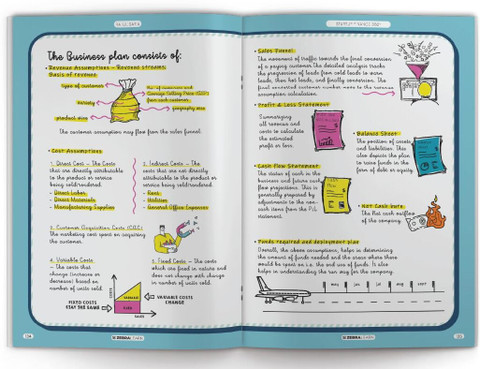 The Business plan consists of:
• Revenue Assumptions – Revenue streams
Basis of revenue
type of customers
variety
product mix
geography mix
The customer assumption may flow from the sales funnel.
• Cost Assumptions
1. Direct Cost – The Costs
that are directly attributable
to the product or service
being sold/rendered.
- Direct Labor
- Direct Materials
- Manufacturing Supplies
2. Indirect Costs – The
costs that are not directly
attributable to the product or
service being sold/rendered.
- Rent
- Utilities
- General Office Expenses
3. Customer Acquisition Costs (CAC)
The marketing cost spent on acquiring
the customer.
4. Variable Costs
- The costs that
change (increase or
decrease) based on
number of units sold.
5. Fixed Costs – The costs
which are fixed in nature and
does not change with change
in number of units sold.
FIXED COSTS
STAY THE SAME
VARIABLE COSTS
CHANGE
• Sales Funnel
The movement of traffic towards the final conversion
of a paying customer. The detailed analysis tracks
the progression of leads from cold leads to warm
leads, then hot leads, and finally conversion. The
final converted customer number goes to the revenue
assumption calculation.
• Profit & Loss Statement
Summarizing
all revenue and
costs to calculate
the estimated
profit or loss.
• Balance Sheet
The position of assets
and liabilities. This
also depicts the plan
to raise funds in the
form of debt or equity.
• Cash Flow Statement
The status of cash in the
business and future cash
flow projections. This is
generally prepared by
adjustments to the non-
cash items from the P&L
statement.
• Net Cash burn
The Net cash outflow
of the company.
• Funds required and deployment plan
Overall, the above assumptions, helps in determining
the amount of funds needed and the areas where there
would be spent on i.e. the end use of funds. It also
helps in understanding the run way for the company.